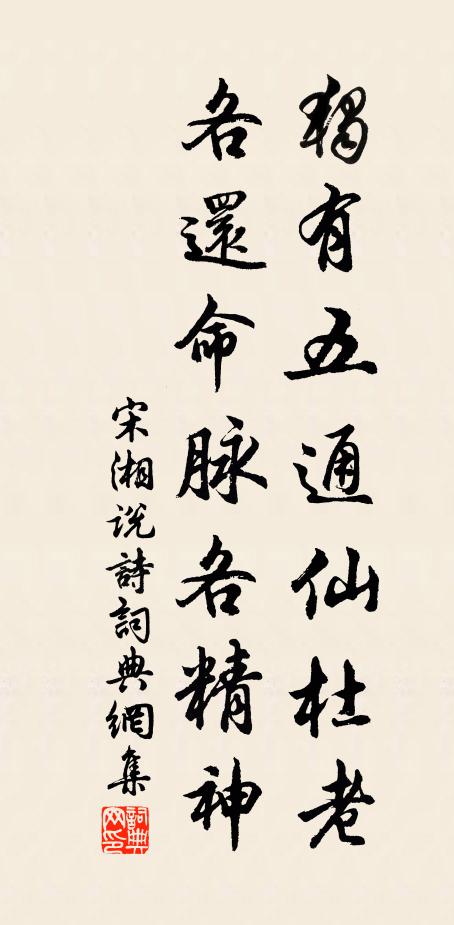 獨有五通仙杜老
各還命脉各精神
宋湘说詩詞典網集
詞典网印